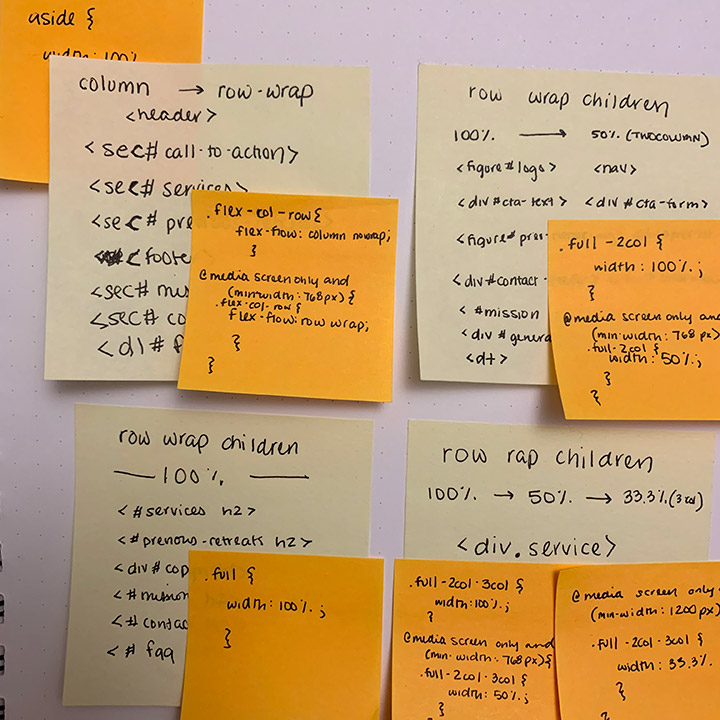 aside {
width: 100%
column → row-wrap
<header>
<sec# call-to-action>
<sec# services>
<sec# pre
<footer
<sec# mis
<sec# co
<dl# f
.flex-col-row{
flex-flow: column nowrap;
}
@media screen only and
(min-width: 768px) {
.flex-col-row {
flex-flow: row wrap;
}
}
row wrap children
100% → 50% (TWOCOLUMN)
<figure#logo> <nav>
<div#cta-text> <div #cta-form>
<figure# pre
<div#contact-
#mission
<div #genera
<dt>
.full-2col {
width: 100%;
}
@media screen only and
(min-width: 768 px) {
.full-2col {
width: 50%;
}
}
row wrap children
— 100% —
<#services h2>
<#previous-retreats h2>
<div# cop
<#mission
<#contac
<# faq
.full {
width: 100%;
}
row rap children
100% → 50% → 33.3% (3 col)
<div.service>
.full-2col-3col {
width: 100%;
}
@media screen only and
(min-width: 768px) {
.full-2col-3col {
width: 50%;
}
}
@media screen only a
(min-width: 1200px)
.full-2col-3col {
width: 33.3%
}